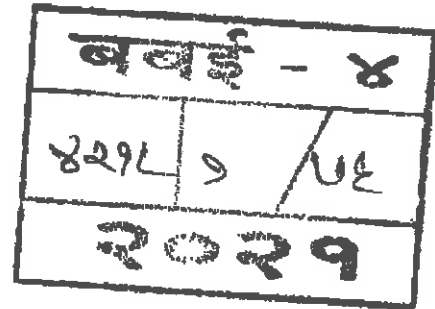 बवई - ४
४२१८ १ / ५६
२०२१